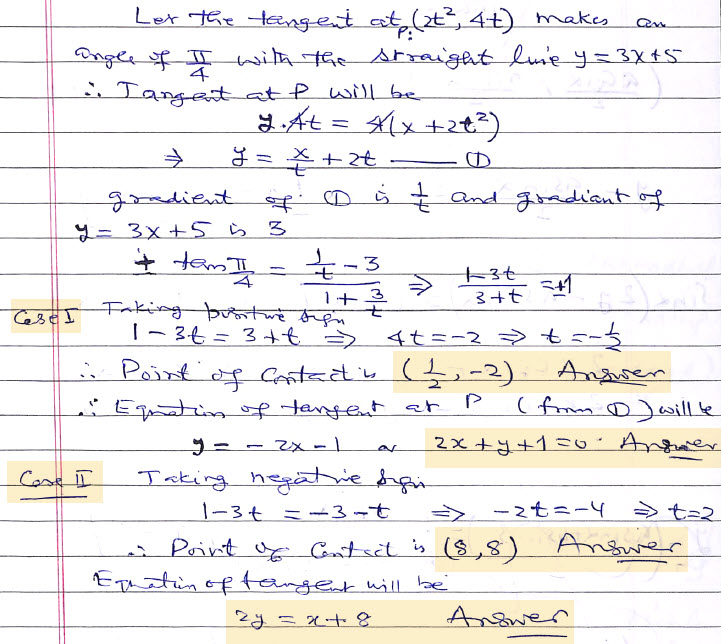 Let the tangent at P: (2t², 4t) makes an
angle of π/4 with the straight line y = 3x+5
∴ Tangent at P will be
y.4t = 4(x + 2t²)
⇒ y = x/t + 2t —— ①
gradient of ① is 1/t and gradiant of
y = 3x+5 is 3
± tan π/4 = (1/t - 3)/(1 + 3/t) ⇒ (1-3t)/(3+t) = ±1
Case I Taking positive sign
1 - 3t = 3 + t ⇒ 4t = -2 ⇒ t = -1/2
∴ Point of Contact is (1/2, -2) Answer
∴ Equation of tangent at P (from ①) will be
y = - 2x - 1 or 2x + y + 1 = 0. Answer
Case II Taking negative sign
1-3t = -3 -t ⇒ -2t = -4 ⇒ t=2
∴ Point of Contact is (8,8) Answer
Equation of tangent will be
2y = x + 8 Answer